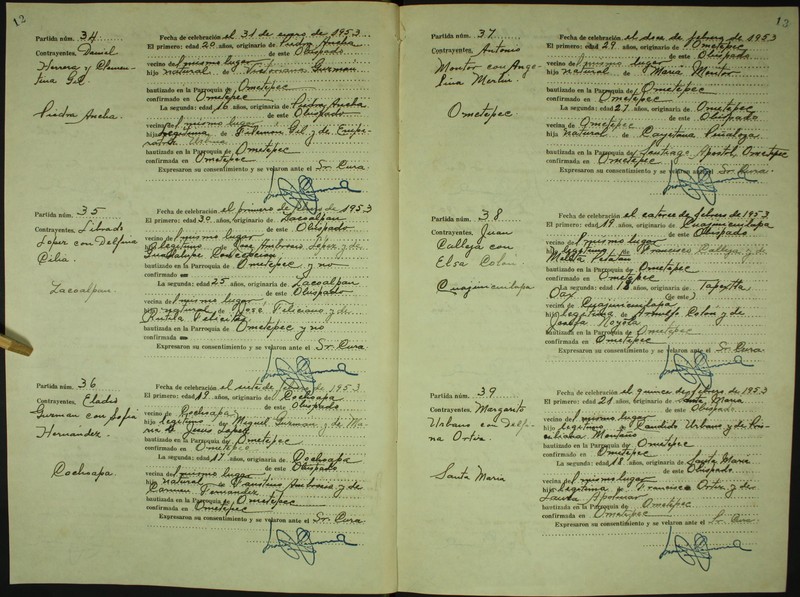 12
Partida núm. 34
Contrayentes, Daniel
Herrera y Clemen-
tina Gil
Piedra Ancha
Fecha de celebración, el 31 de enero de 1953
El primero: edad 20 años, originario de Piedra Ancha
de este Obispado
vecino de l mismo lugar
hijo natural de Victoriana Guzmán
bautizado en la Parroquia de Ometepec
confirmado en Ometepec
La segunda: edad 16 años, originaria de Piedra Ancha
de este Obispado
vecina de l mismo lugar
hija legítima de Filemón Gil y de
bautizada en la Parroquia de Ometepec
confirmada en Ometepec
Expresaron su consentimiento y se velaron ante el Sr. Cura.
Partida núm. 35
Contrayentes, Librado
López con Delfina
Cilia.
Zacoalpan.
Fecha de celebración, el primero de febrero de 1953
El primero: edad 30 años, originario de Zacoalpan
de este Obispado
vecino de l mismo lugar
hijo legítimo de José Ambrosio López y de
Guadalupe Concepción
bautizado en la Parroquia de Ometepec y no
confirmado en
La segunda: edad 25 años, originaria de Zacoalpan
de este Obispado
vecina de l mismo lugar
hija natural de José Feliciano y de
bautizada en la Parroquia de Ometepec y no
confirmada en
Expresaron su consentimiento y se velaron ante el Sr. Cura
Partida núm. 36
Contrayentes, Eladio
Guzmán con Sofía
Hernández.
Cochoapa
Fecha de celebración, el siete de febrero de 1953
El primero: edad 19 años, originario de Cochoapa
de este Obispado
vecino de Cochoapa
hijo legítimo de Miguel Guzmán y de Ma-
ría de Jesús López
bautizado en la Parroquia de Ometepec
confirmado en Ometepec
La segunda: edad 17 años, originaria de Cochoapa
de este Obispado
vecina de l mismo lugar
hija natural de Faustino Ambrosio y de
Carmen Fernández
bautizada en la Parroquia de Ometepec
confirmada en Ometepec
Expresaron su consentimiento y se velaron ante el Sr. Cura
13
Partida núm. 37
Contrayentes, Antonio
Montor con Ange-
lina
Ometepec
Fecha de celebración, el doce de febrero de 1953
El primero: edad 29 años, originario de Ometepec
de este Obispado
vecino de l mismo lugar
hijo natural de María Montor
bautizado en la Parroquia de Ometepec
confirmado en Ometepec
La segunda: edad 27 años, originaria de Ometepec
de este Obispado
vecina de Ometepec
hija natural de Cayetana Peñaloza
bautizada en la Parroquia de Santiago Apóstol, Ometepec
confirmada en Ometepec
Expresaron su consentimiento y se velaron ante el Sr. Cura.
Partida núm. 38
Contrayentes, Juan
Calleja con
Elsa Colón
Cuajinicuilapa
Fecha de celebración, el catorce de febrero de 1953
El primero: edad 19 años, originario de Cuajinicuilapa
de este Obispado
vecino de l mismo lugar
hijo legítimo de Francisco Calleja y de
bautizado en la Parroquia de Ometepec
confirmado en Ometepec
La segunda: edad 18 años, originaria de Tapextla
Oax. de este
vecina de Cuajinicuilapa
hija legítima de Arnulfo Colón y de
Josefa Noyola
bautizada en la Parroquia de Ometepec
confirmada en Ometepec
Expresaron su consentimiento y se velaron ante el Sr. Cura
Partida núm. 39
Contrayentes, Margarito
Urbano con Delfi-
na Ortiz.
Santa María
Fecha de celebración, el quince de febrero de 1953
El primero: edad 21 años, originario de Santa María
de este Obispado.
vecino de l mismo lugar
hijo legítimo de Candido Urbano y de
Montaño
bautizado en la Parroquia de Ometepec
confirmado en Ometepec
La segunda: edad 18 años, originaria de Santa María
de este Obispado.
vecina de l mismo lugar
hija legítima de Francisco Ortiz y de
Laura Apolinar
bautizada en la Parroquia de Ometepec
confirmada en Ometepec
Expresaron su consentimiento y se velaron ante el Sr. Cura